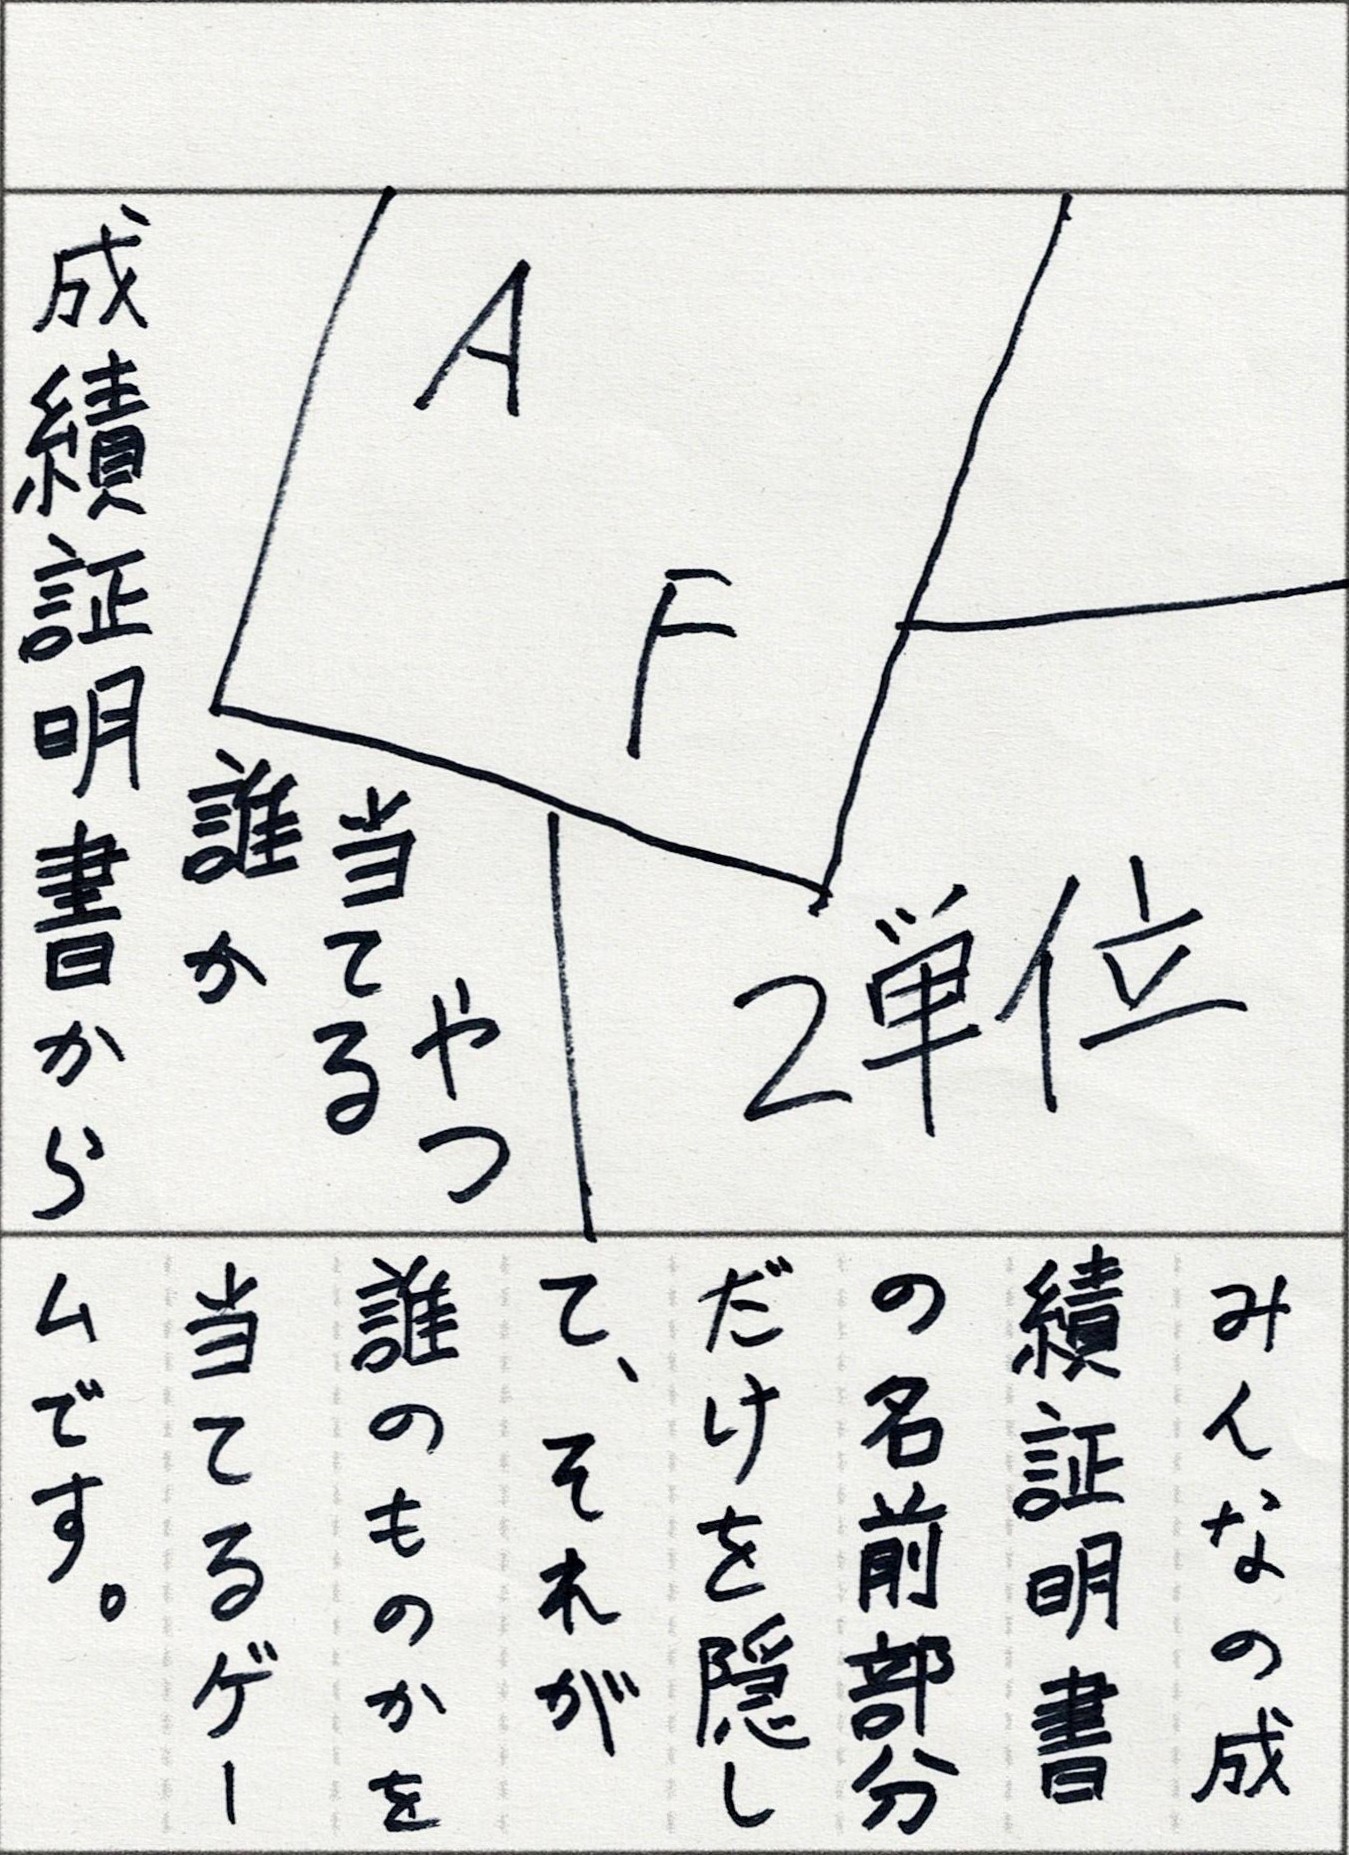 A
F
2単位
成績証明書から
誰か
当てる
やつ
みんなの成
績証明書
の名前部分
だけを隠し
て、それが
誰のものかを
当てるゲー
ムです。